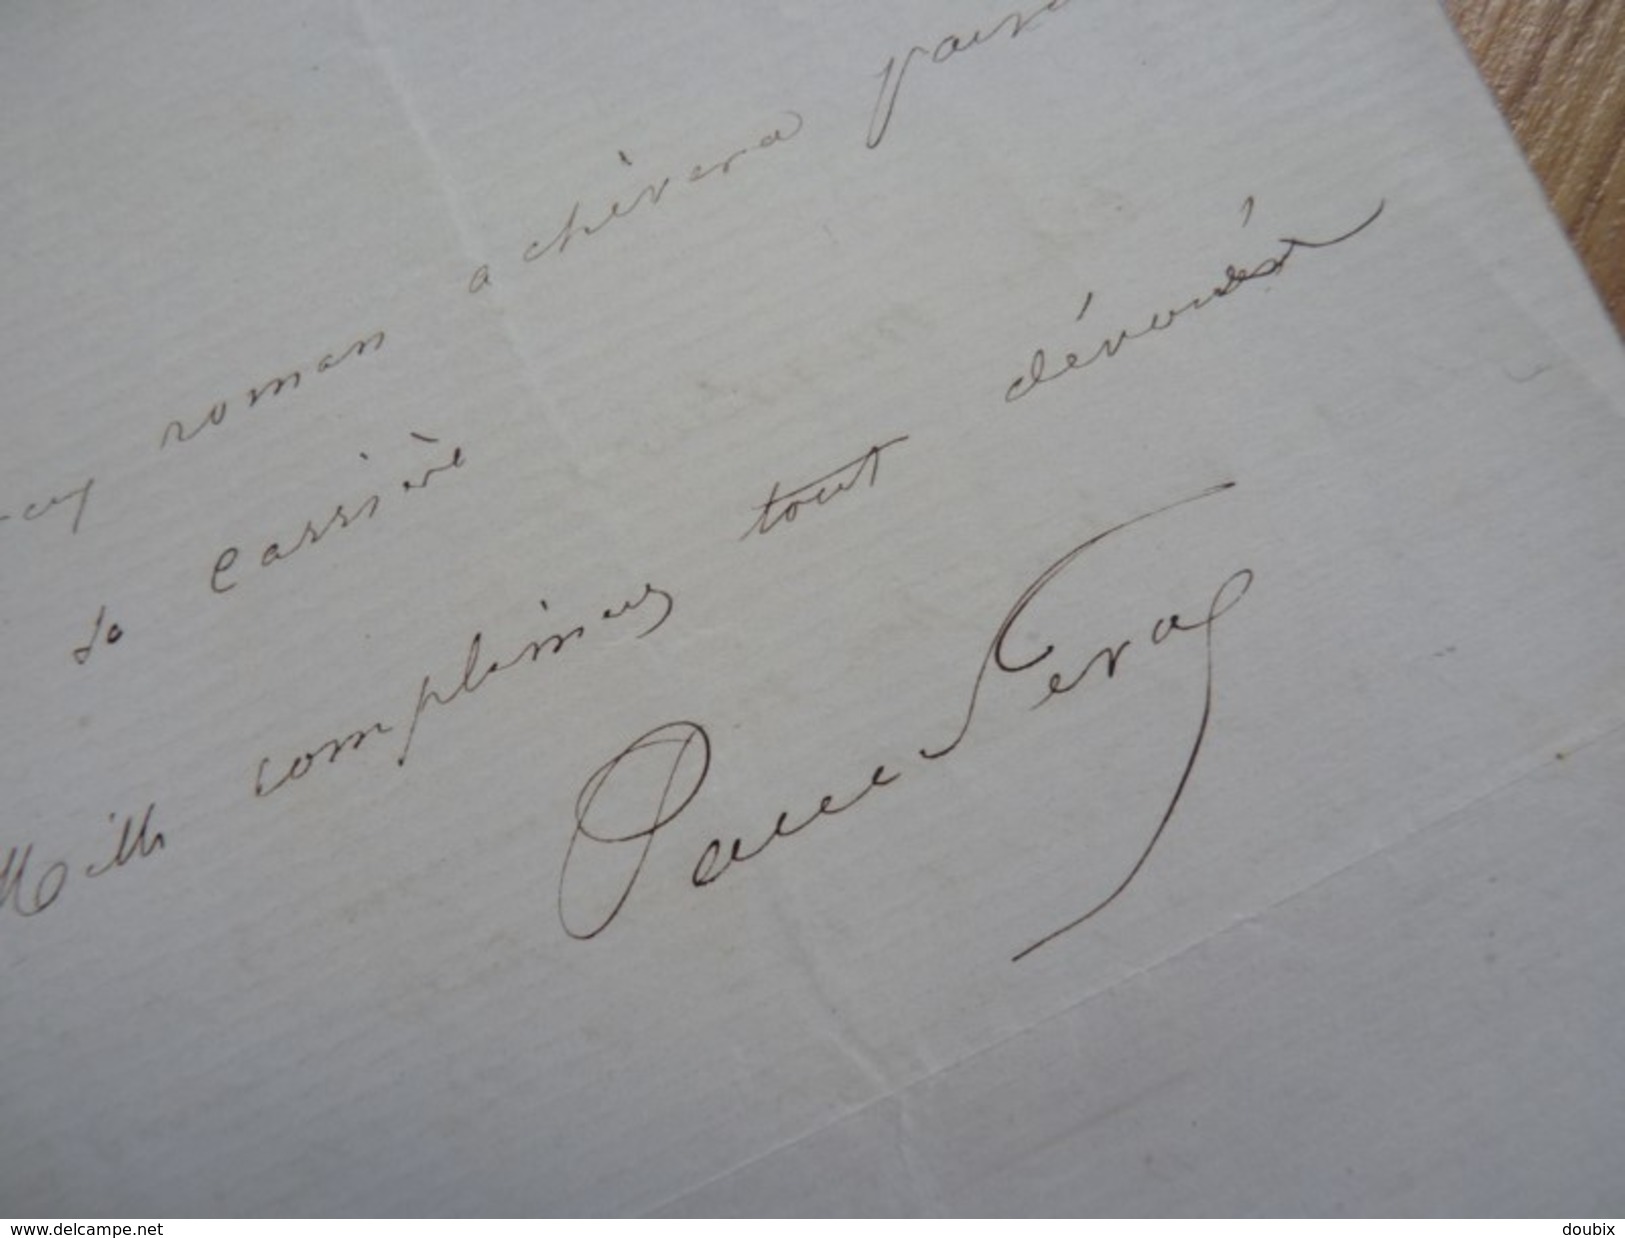 roman achèvera
sa carrière
Mille complimens tout dévoués
Paul Féval
www.delcampe.net
doubix